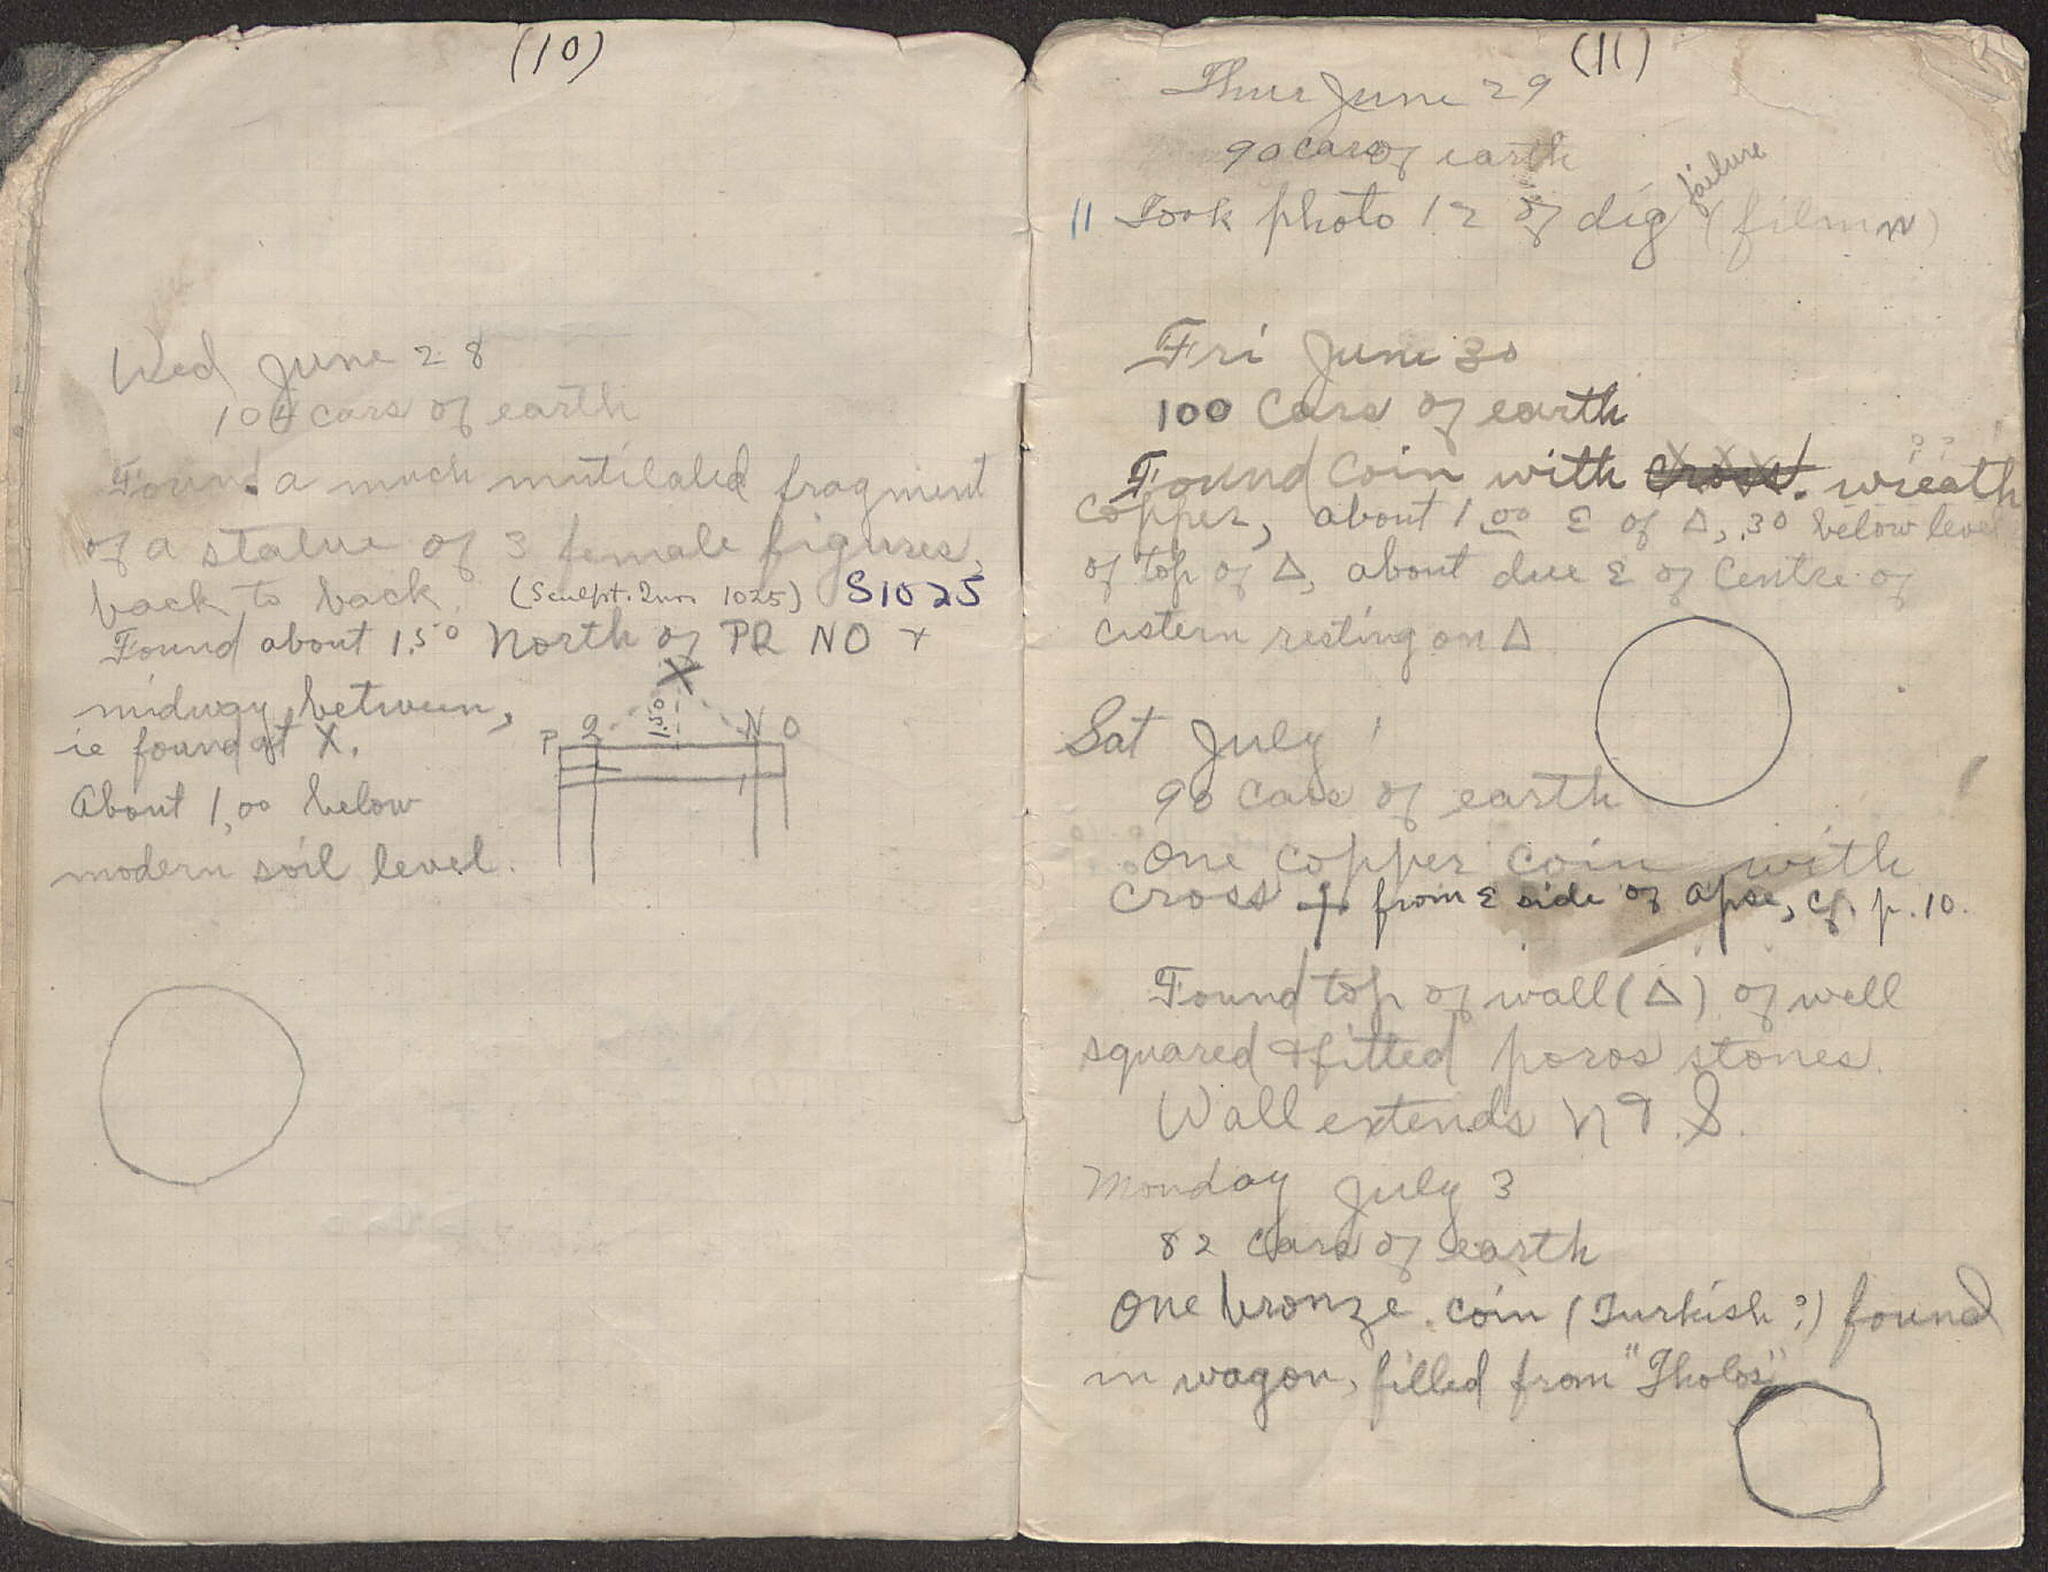 (10)
Wed June 28
104 cars of earth
Found a much mutilated fragment
of a statue of 3 female figures,
back to back. (Sculpt. Inv. 1025) S1025
Found about 1.50 North of PQ NO +
midway between,
ie found at X.
About 1,00 below
modern soil level.
X
1.50
P Q N O
(11)
Thur June 29
90 cars of earth
failure
11 Took photo 12 of dig (film n)
Fri June 30
100 Cars of earth
Found Coin with cross. wreath
??
copper, about 1.00 E of Δ, .30 below level
of top of Δ, about due E of Centre of
cistern resting on Δ
Sat July 1
90 Cars of earth
One copper coin with
cross + from E side of apse, cf. p. 10.
Found top of wall (Δ) of well
squared & fitted poros stones.
Wall extends N & S.
Monday July 3
82 cars of earth
One bronze coin (Turkish?) found
in wagon, filled from "Tholos"